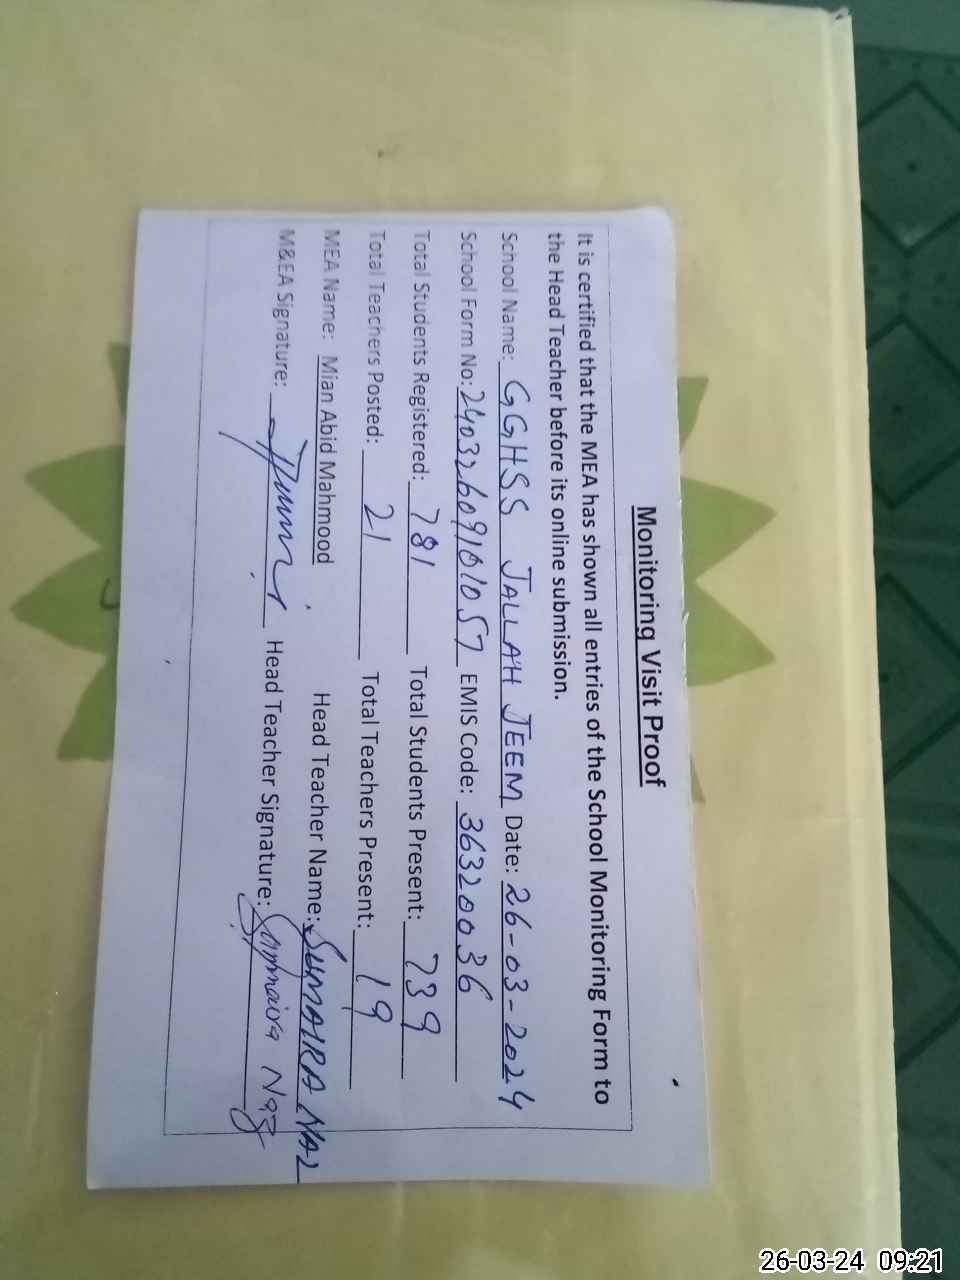 Monitoring Visit Proof
It is certified that the MEA has shown all entries of the School Monitoring Form to
the Head Teacher before its online submission.
School Name: GGHSS JALLAH JEEM Date: 26-03-2024
School Form No: 24032609101057 EMIS Code: 36320036
Total Students Registered: 781 Total Students Present: 739
Total Teachers Posted: 21 Total Teachers Present: 19
MEA Name: Mian Abid Mahmood Head Teacher Name: SUMAIRA NAZ
M&EA Signature: Head Teacher Signature: Sumaira Naz
26-03-24 09:21